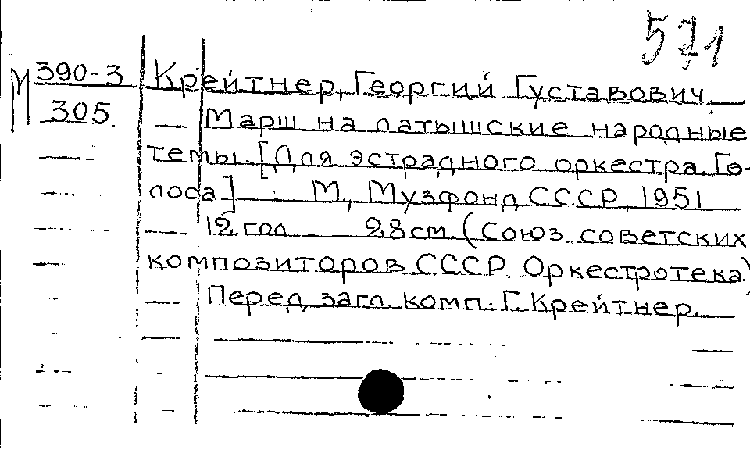 571
М 390-3 Крейтнер, Георгий Густавович
305. Марш на латышские народные
темы. [Для эстрадного оркестра. Го-
лоса] М., Музфонд СССР, 1951
12 гол 28 см (Союз советских
композиторов СССР. Оркестротека)
Перед загл. комп.: Г. Крейтнер.